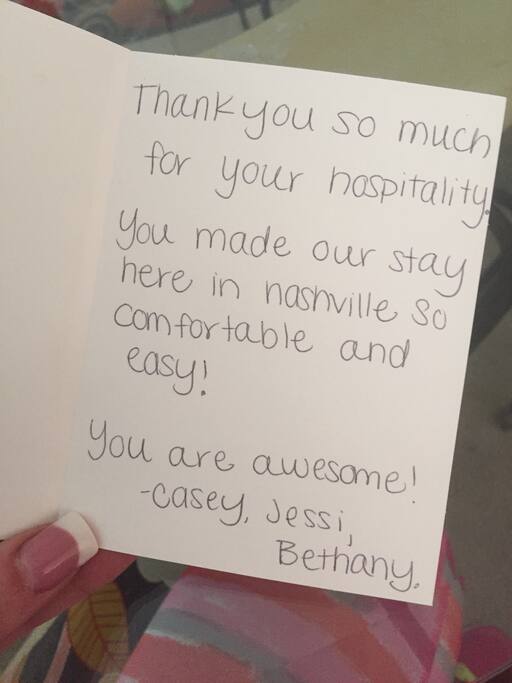 Thank you so much
for your hospitality.
You made our stay
here in nashville so
comfortable and
easy!
You are awesome!
-casey, Jessi,
Bethany.